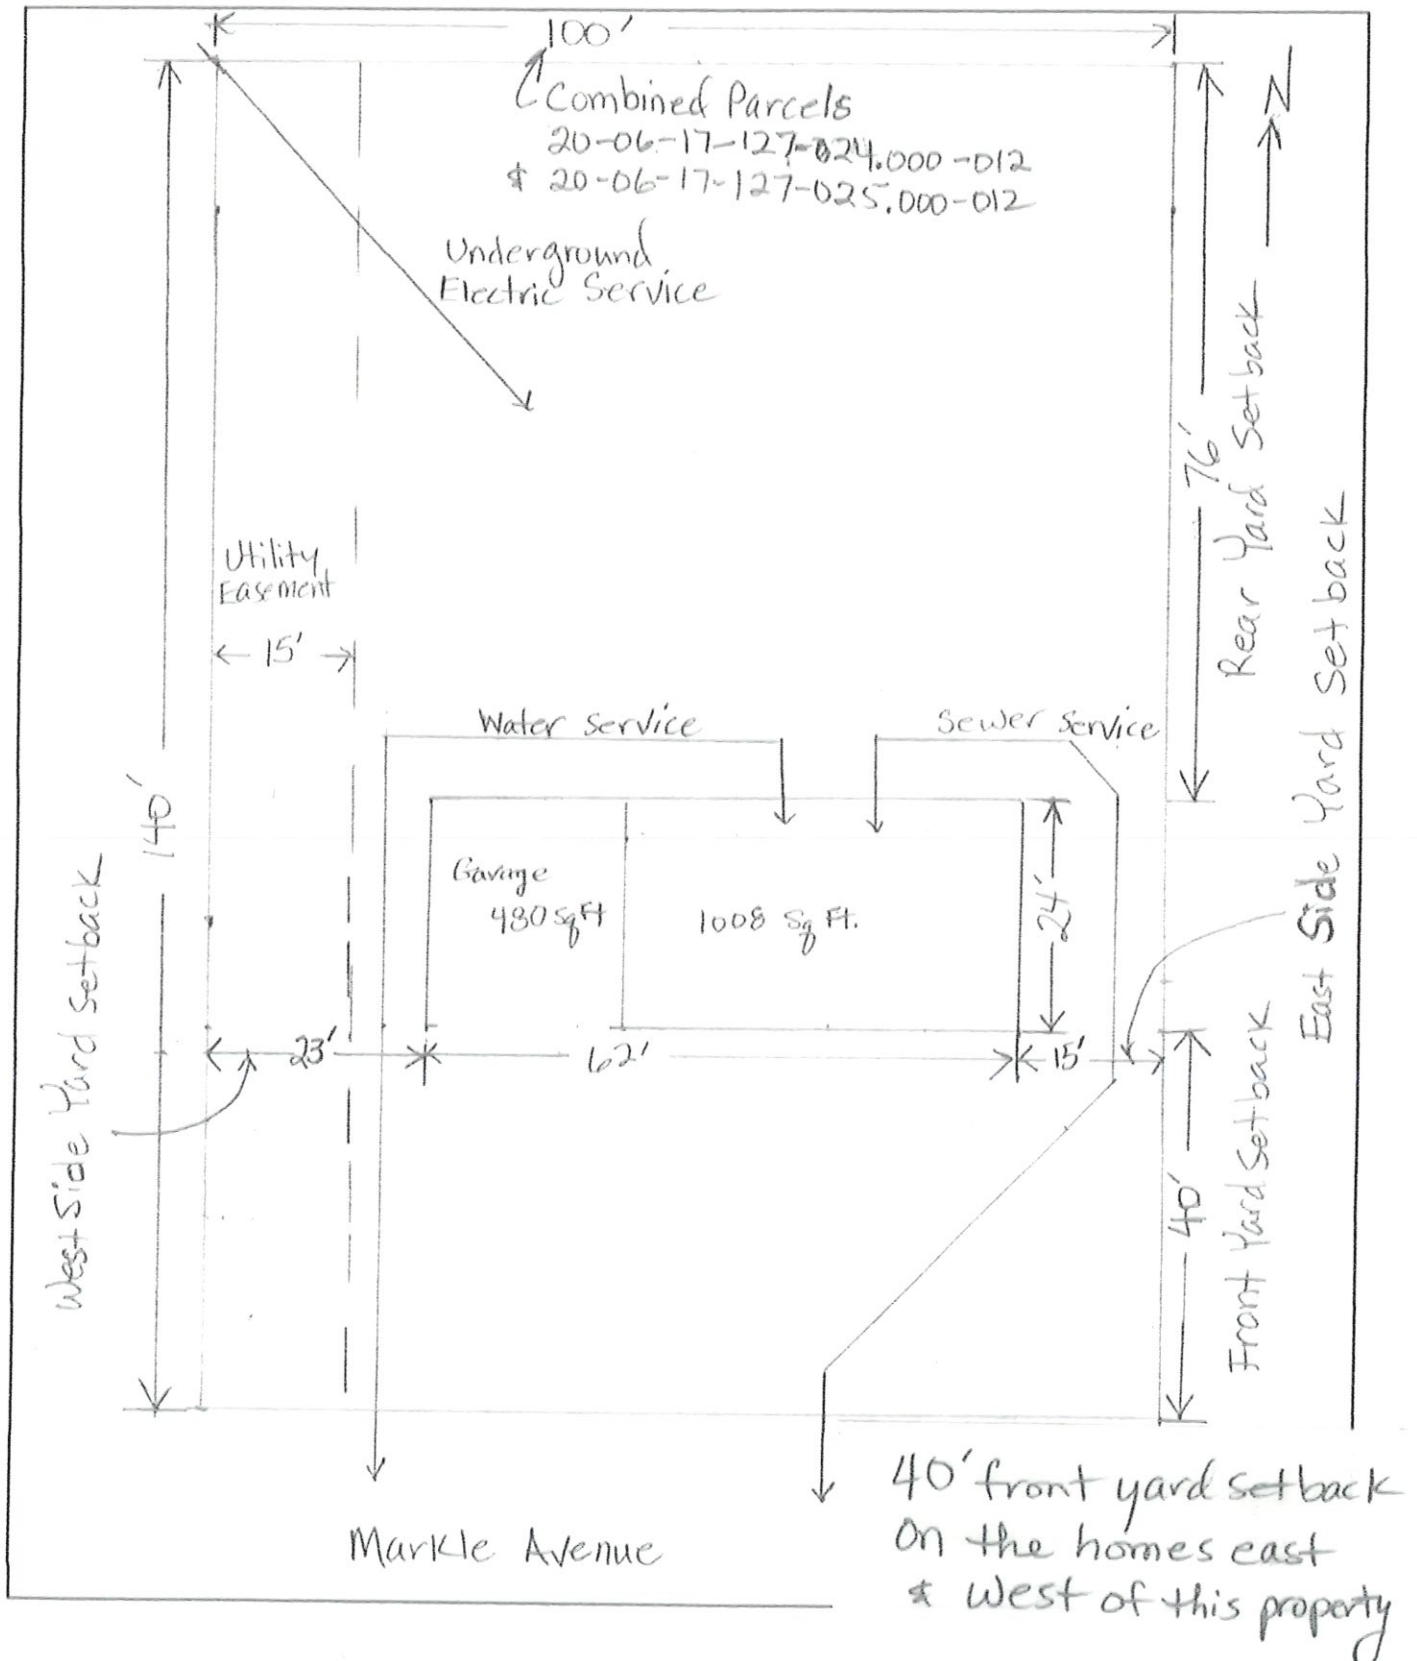 100'
Combined Parcels
20-06-17-127-024.000-012
& 20-06-17-127-025.000-012
N
Underground
Electric Service
76'
Rear Yard Setback
East Side Yard Setback
Utility
Easement
15'
Water Service
Sewer Service
140'
West Side Yard Setback
Garage
480 Sq Ft
1008 Sq Ft.
24'
23'
62'
15'
40'
Front Yard Setback
40' front yard setback
on the homes east
& west of this property
Markle Avenue